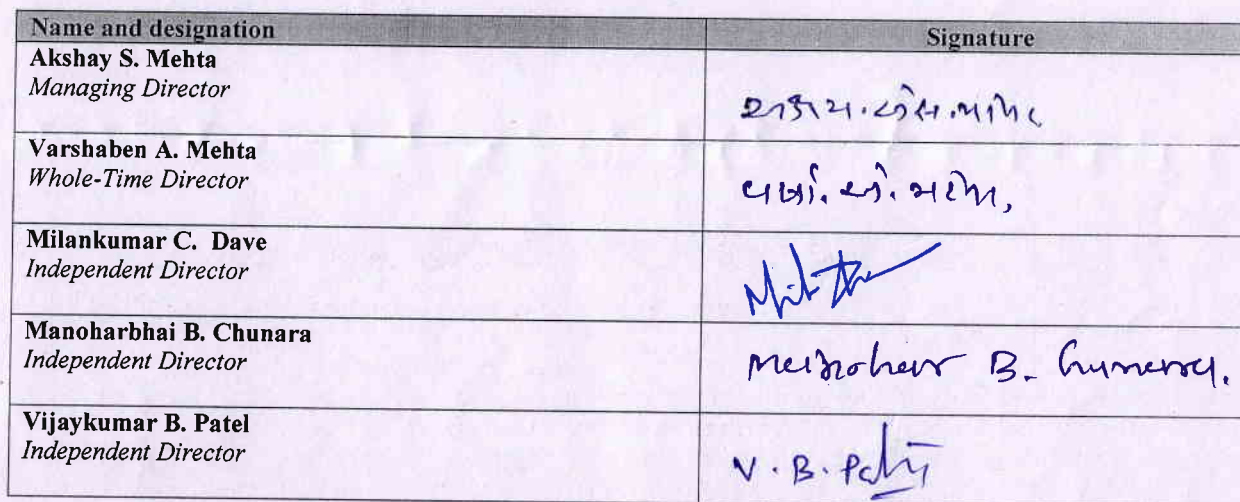 Name and designation
Signature
Akshay S. Mehta
Managing Director
Varshaben A. Mehta
Whole-Time Director
વર્ષા. એ. મહેતા,
Milankumar C. Dave
Independent Director
Manoharbhai B. Chunara
Independent Director
Manohar B. Chunara.
Vijaykumar B. Patel
Independent Director
V. B. Patel